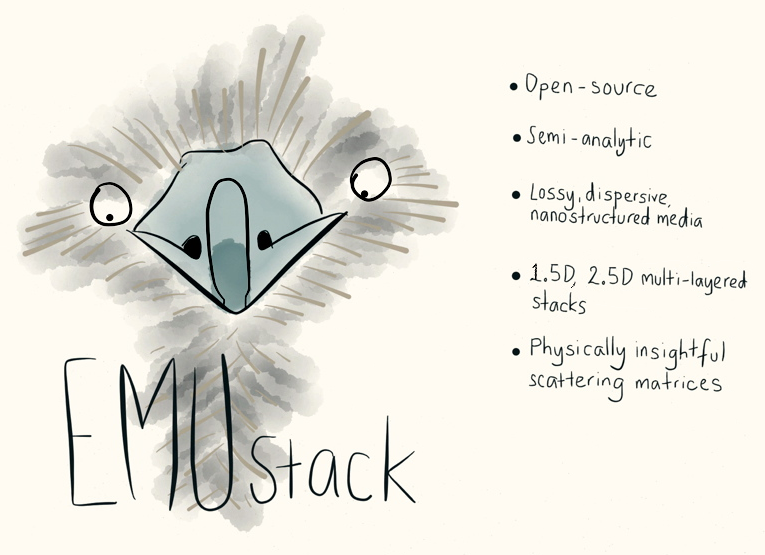 EMUstack
• Open-source
• Semi-analytic
• Lossy, dispersive,
nanostructured media
• 1.5D, 2.5D multi-layered
stacks
• Physically insightful
scattering matrices